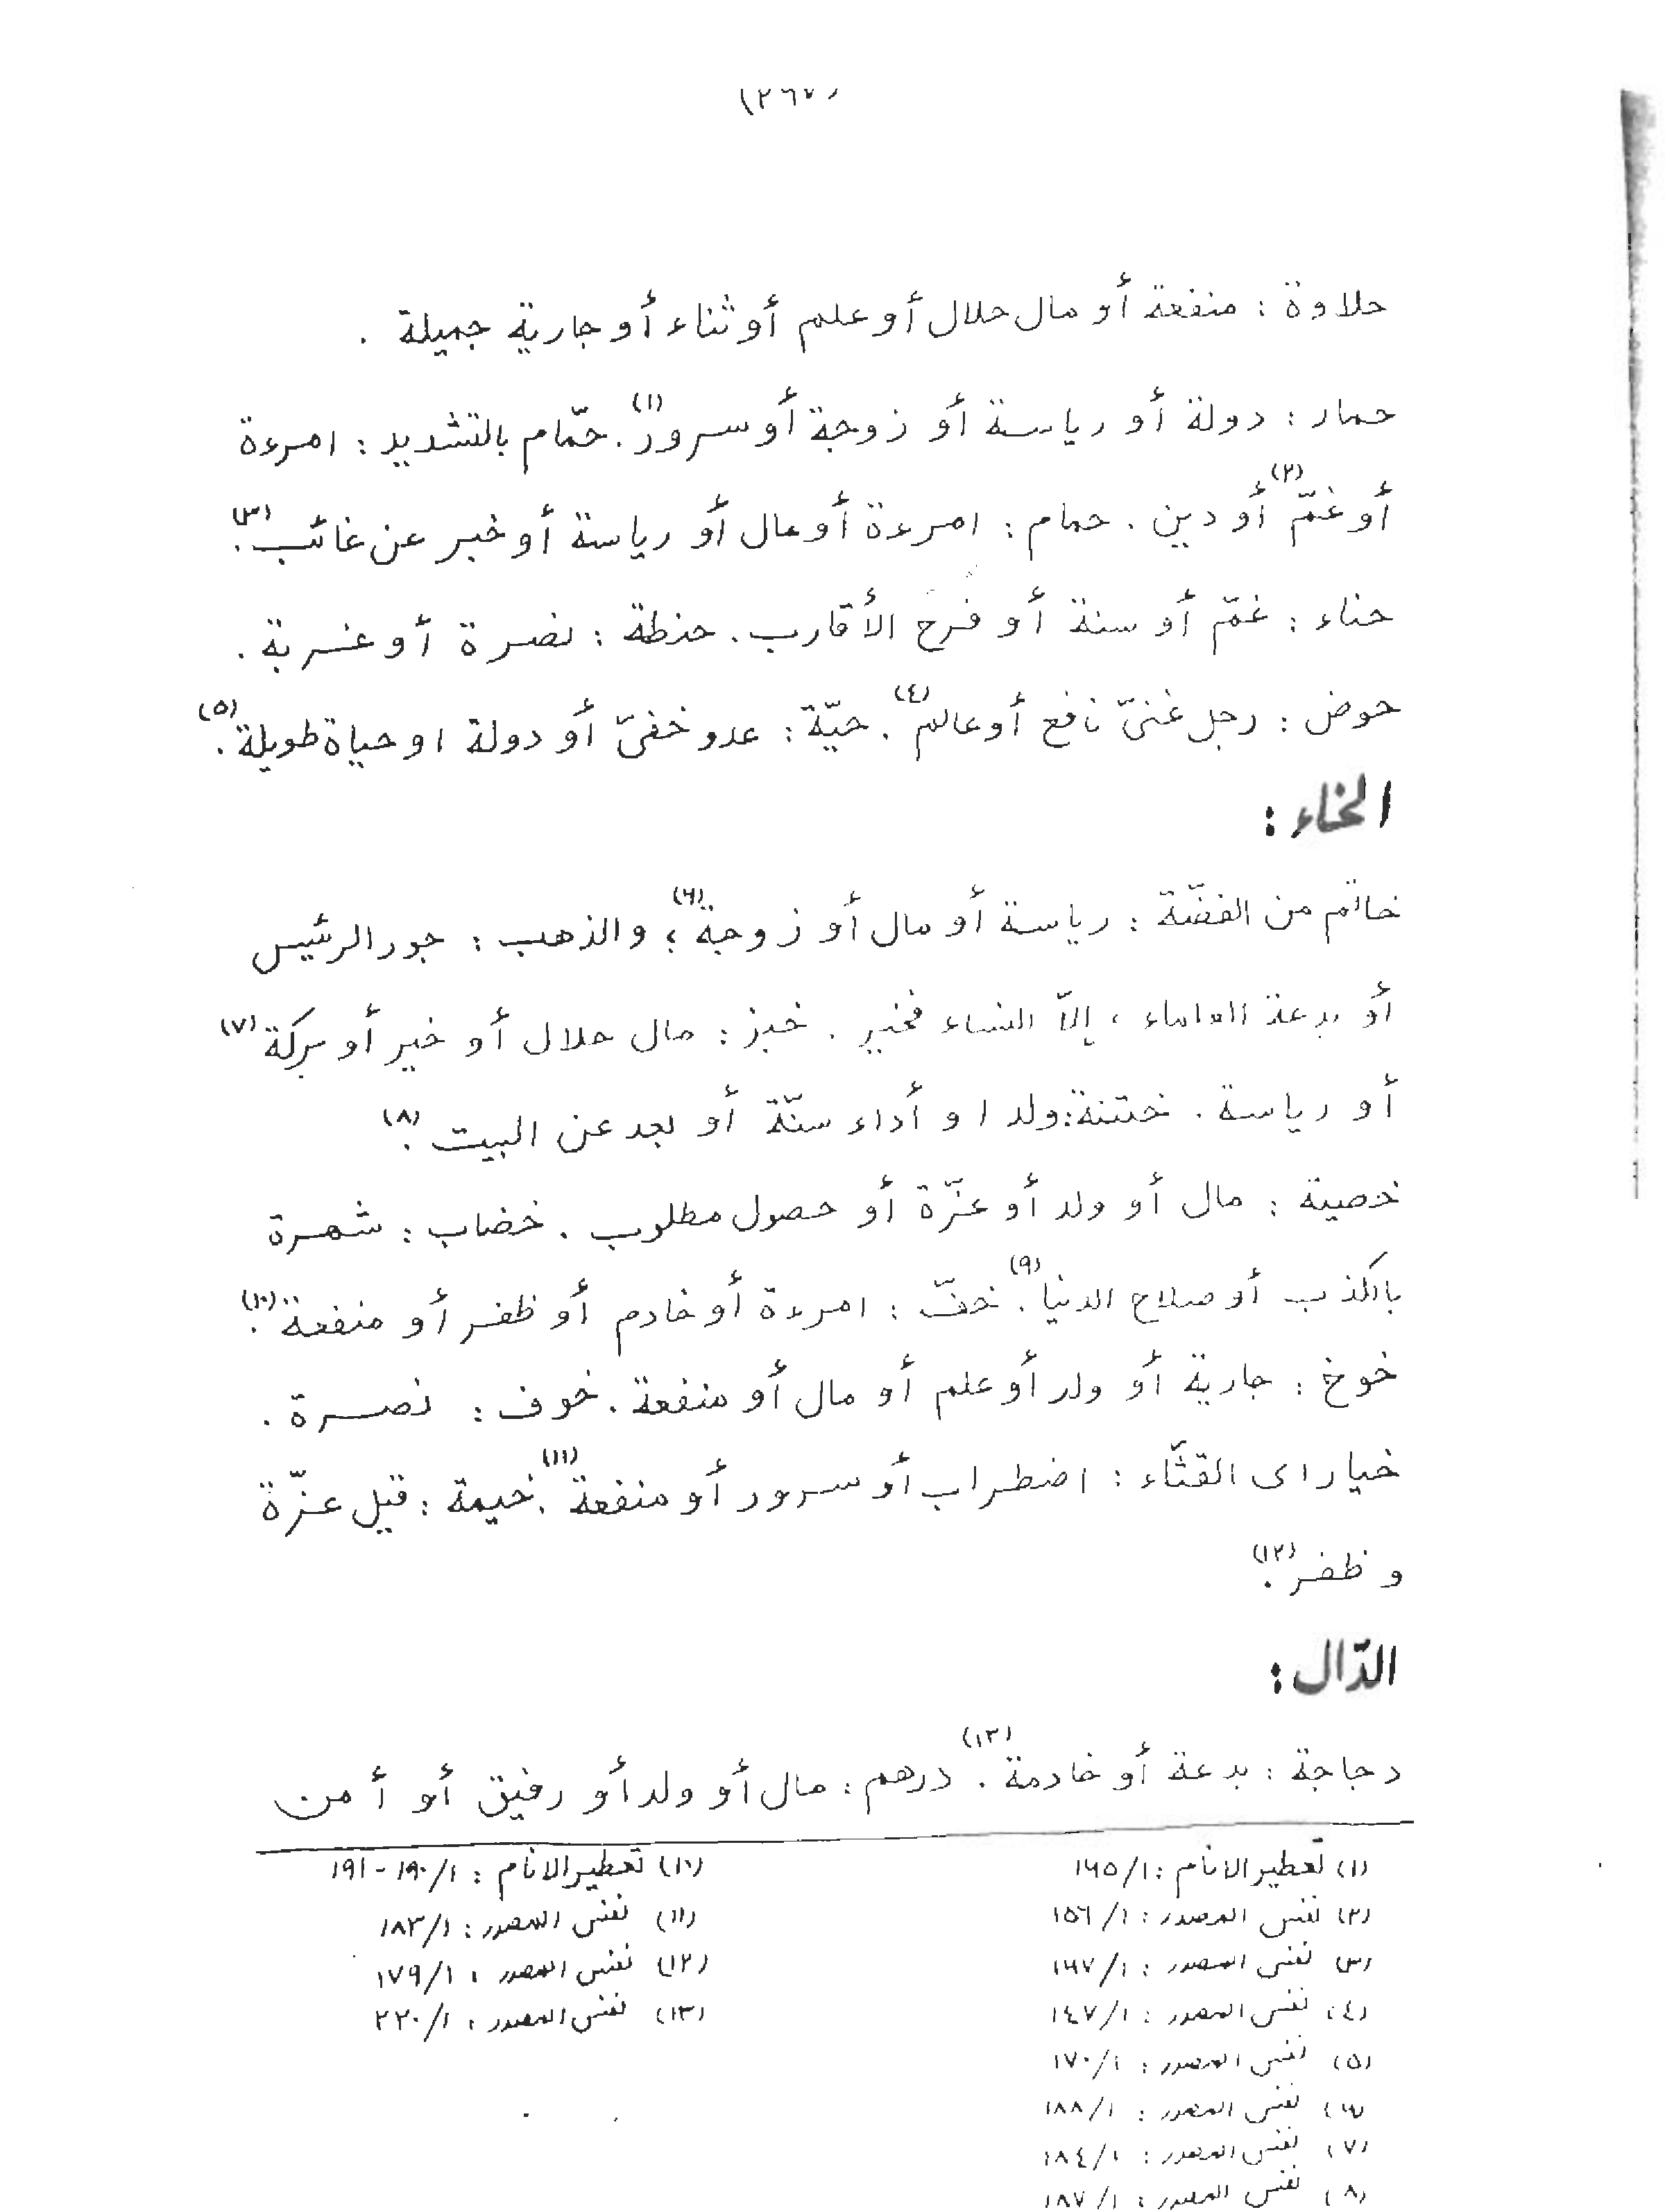 (٢٦٧)
حلاوة : منفعة أو مال حلال أو علم أو ثناء أو جارية جميلة .
حمار : دولة أو رياسة أو زوجة أو سرور(١). حمّام بالتشديد : امرءة
أو غمّ(٢) أو دين . حمام : امرءة أو مال أو رياسة أو خبر عن غائب(٣).
حناء : غمّ أو سنة أو فرح الأقارب . حنطة : نصرة أو غربة .
حوض : رجل غنىّ نافع أو عالم(٤). حيّة : عدو خفىّ أو دولة او حياة طويلة(٥).
الخاء :
خاتم من الفضّة : رياسة أو مال أو زوجة(٦)؛ والذهب : جور الرئيس
أو بدعة العلماء ، إلاّ النساء فخير . خبز : مال حلال أو خير أو بركة(٧)
أو رياسة . ختنة : ولد او أداء سنّة أو بعد عن البيت(٨).
خصية : مال أو ولد أو عزّة أو حصول مطلوب . خضاب : شهرة
بالكذب أو صلاح الدنيا(٩). خفّ : امرءة أو خادم أو ظفر أو منفعة(١٠).
خوخ : جارية أو ولد أو علم أو مال أو منفعة . خوف : نصرة .
خيار اى القثّاء : اضطراب أو سرور أو منفعة(١١). خيمة : قيل عزّة
و ظفر(١٢).
الدّال :
دجاجة : بدعة أو خادمة(١٣). درهم : مال أو ولد أو رفيق أو أمن
(١) تعطير الانام : ١/ ١٦٥
(٢) نفس المصدر : ١/ ١٥٦
(٣) نفس المصدر : ١/ ١٦٧
(٤) نفس المصدر : ١/ ١٤٧
(٥) نفس المصدر : ١/ ١٧٠
(٦) نفس المصدر : ١/ ١٨٨
(٧) نفس المصدر : ١/ ١٨٤
(٨) نفس المصدر : ١/ ١٨٧
(١٠) تعطير الانام : ١/ ١٩٠ - ١٩١
(١١) نفس المصدر : ١/ ١٨٣
(١٢) نفس المصدر : ١/ ١٧٩
(١٣) نفس المصدر : ١/ ٢٢٠